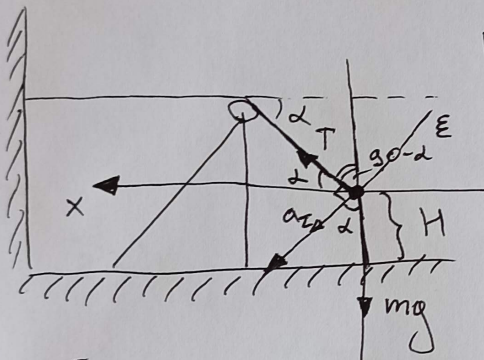 α
T
ε
90-α
α
X
a
α
H
mg